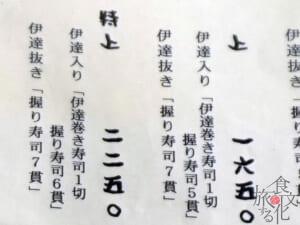 上 一六五〇
伊達入り「伊達巻き寿司1切
握り寿司5貫」
伊達抜き「握り寿司7貫」
特上 二二五〇
伊達入り「伊達巻き寿司1切
握り寿司6貫」
伊達抜き「握り寿司7貫」
食文化
旅する